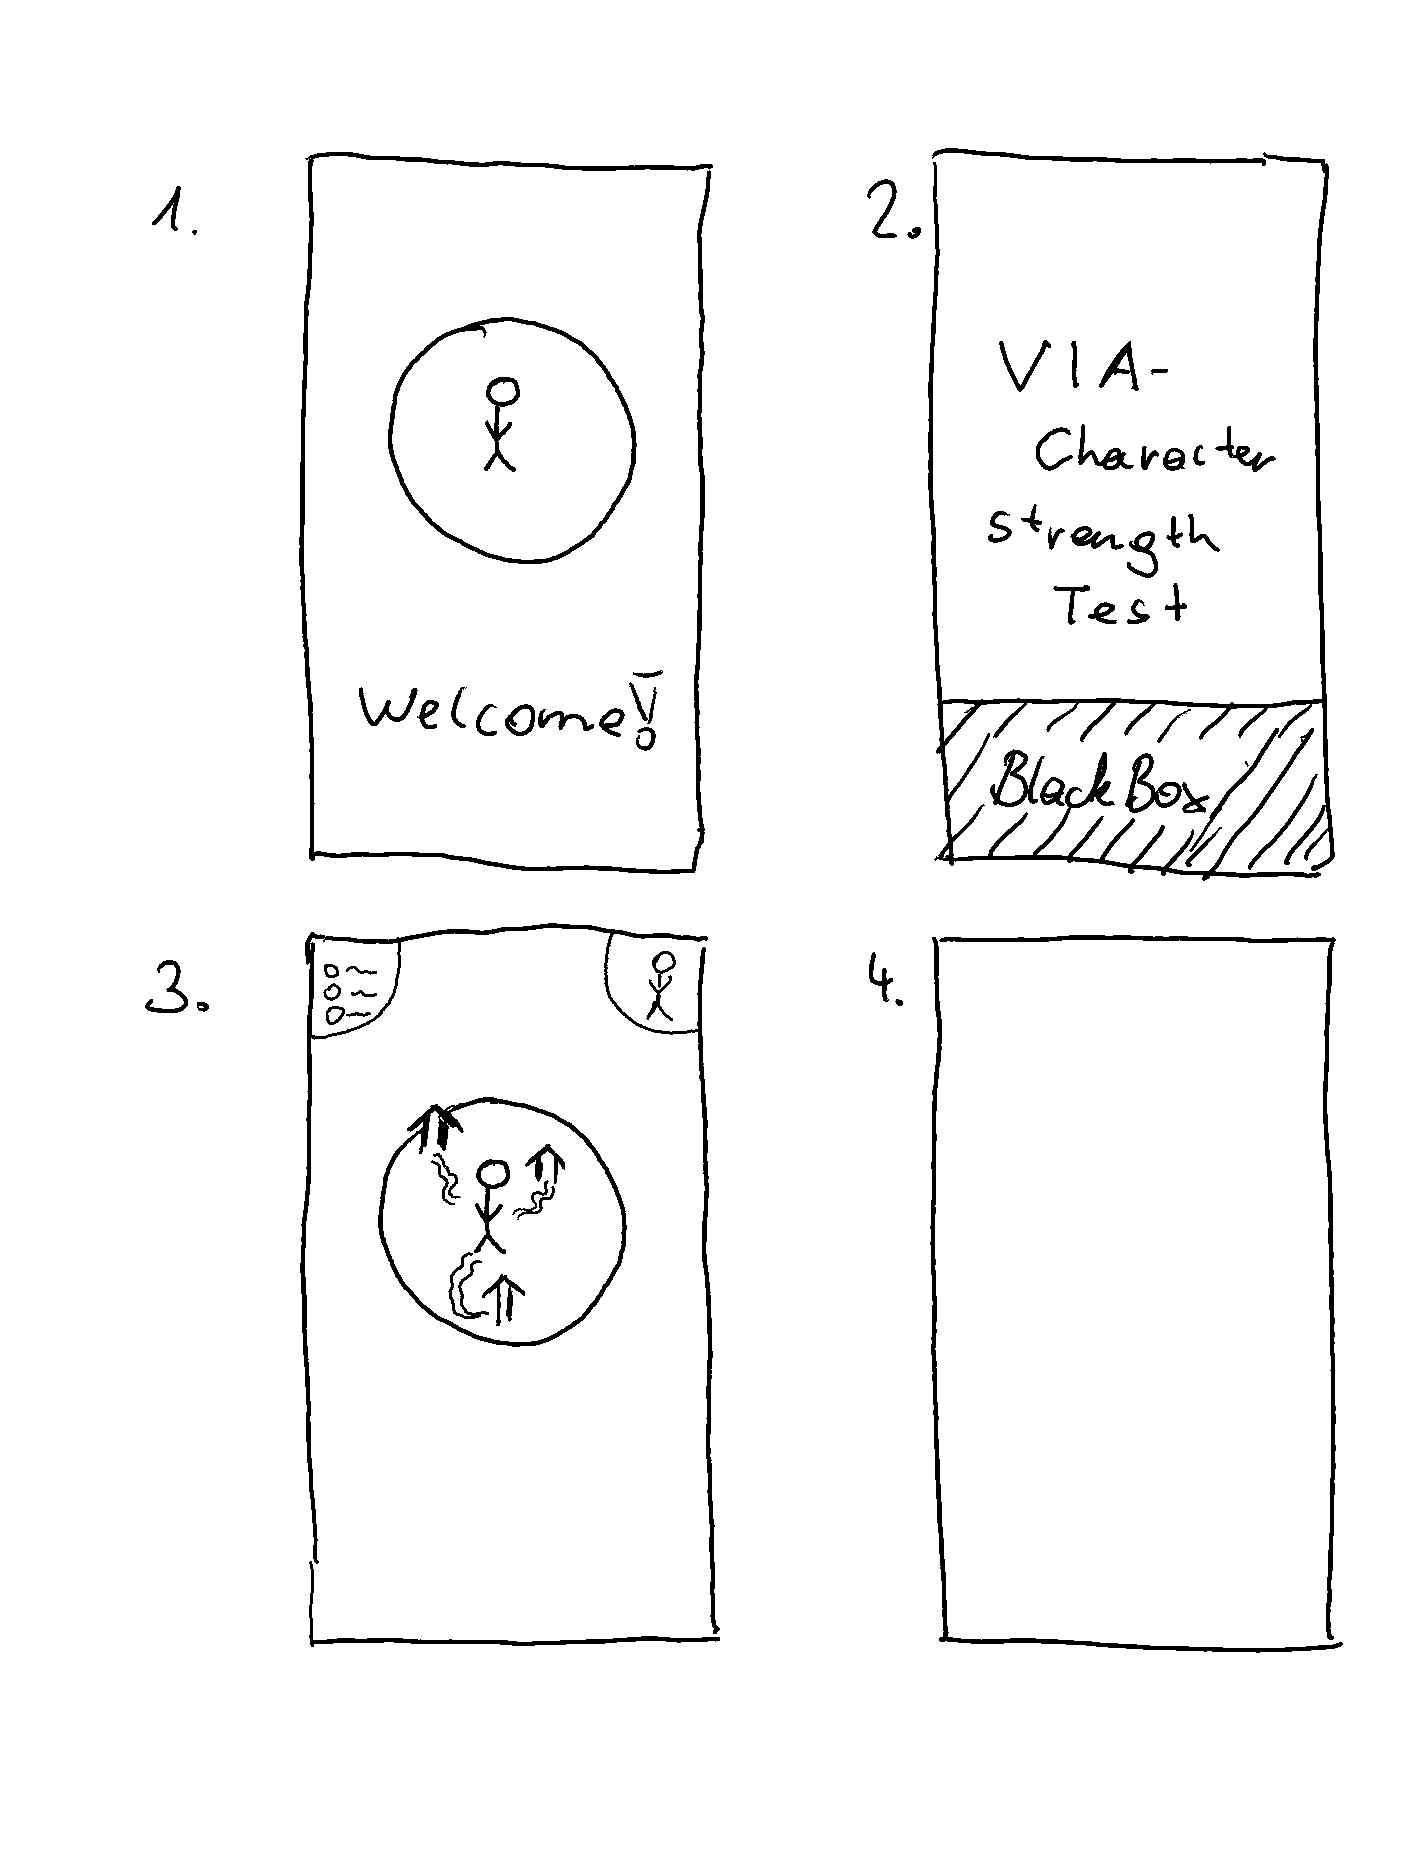 1.
Welcome!
2.
VIA-
Character
strength
Test
BlackBox
3.
4.